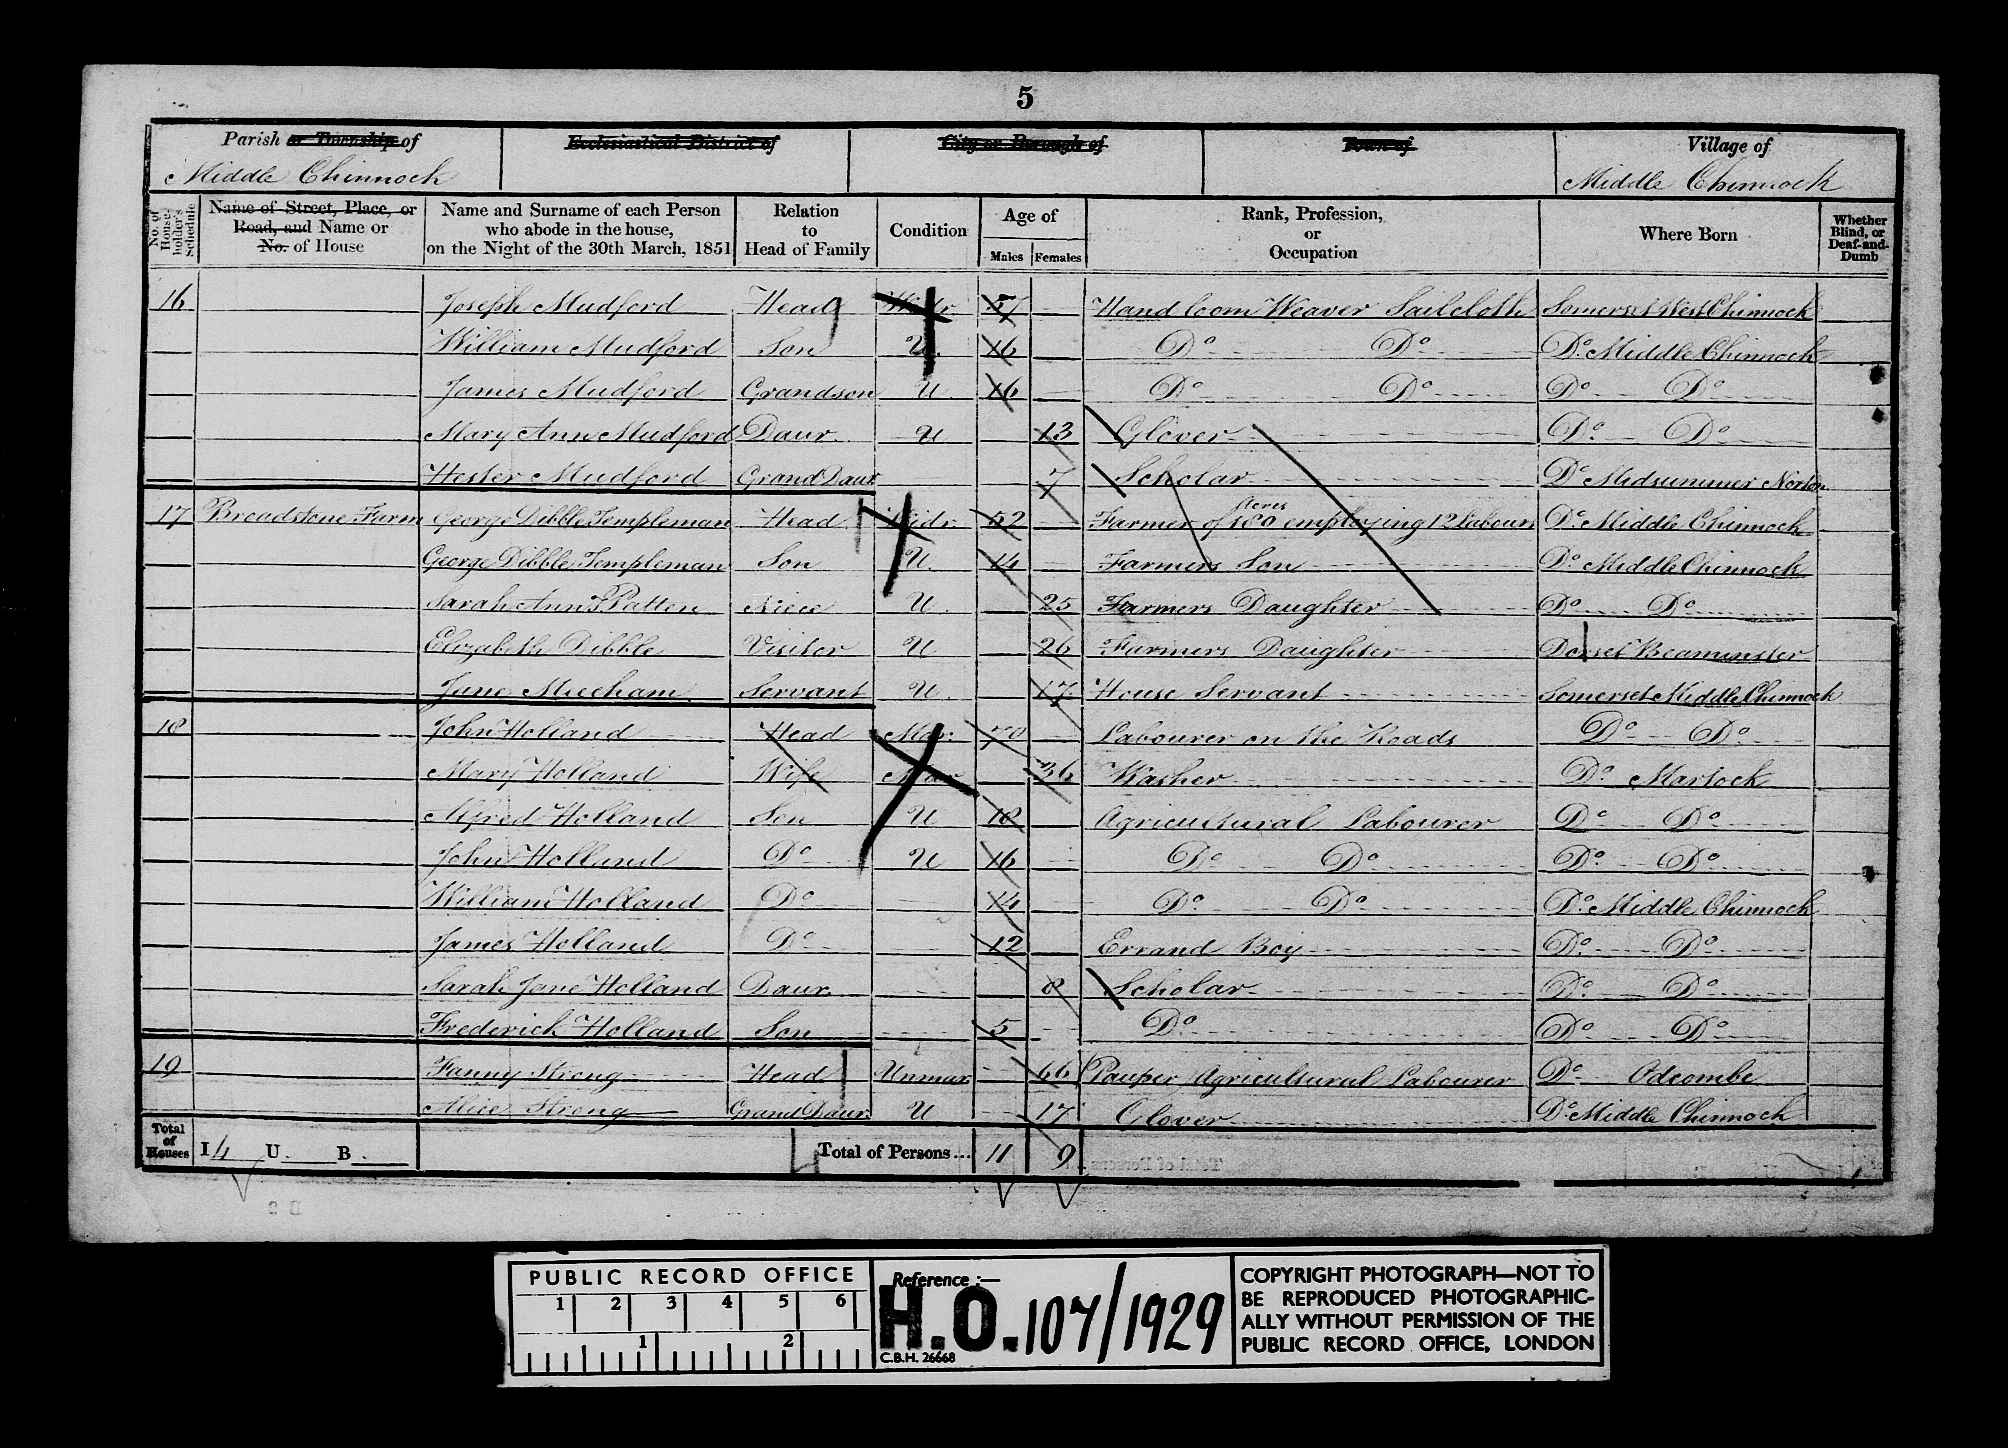 5
Parish or Township of Ecclesiastical District of City or Borough of Town of Village of
Middle Chinnock Middle Chinnock
No. of House-holder's Schedule Name of Street, Place, or Road, and Name or No. of House Name and Surname of each Person who abode in the house, on the Night of the 30th March, 1851 Relation to Head of Family Condition Age of Males Females Rank, Profession, or Occupation Where Born Whether Blind, or Deaf-and-Dumb
16 Joseph Mudford Head Widr 57 Hand loom Weaver Sailcloth Somerset West Chinnock
William Mudford Son U. 16 Do Do Do Middle Chinnock
James Mudford Grandson U 16 Do Do Do Do
Mary Ann Mudford Daur U 13 Glover Do Do
Hester Mudford Grand Daur 7 Scholar Do Midsummer Norton
17 Broadstone Farm George Dibble Templeman Head Widr 52 Farmer of 180 Acres employing 12 labours Do Middle Chinnock
George Dibble Templeman Son U. 14 Farmers Son Do Middle Chinnock
Sarah Ann Patten Niece U. 25 Farmers Daughter Do Do
Elizabeth Dibble Visitor U 26 Farmers Daughter Dorset Beaminster
Jane Meecham Servant U. 17 House Servant Somerset Middle Chinnock
18 John Holland Head Mar: Labourer on the Roads Do Do
Mary Holland Wife Mar 36 Washer Do Martock
Alfred Holland Son U 18 Agricultural Labourer Do Do
John Holland Do U 16 Do Do Do Do
William Holland Do 14 Do Do Do Middle Chinnock
James Holland Do 12 Errand Boy Do Do
Sarah Jane Holland Daur 8 Scholar Do Do
Frederick Holland Son 5 Do Do Do
19 Fanny Strong Head Unmar 66 Pauper Agricultural Labourer Do Odcombe
Alice Strong Grand Daur U 17 Glover Do Middle Chinnock
Total of Houses I 4 U. B. Total of Persons... 11 9
PUBLIC RECORD OFFICE
1 2 3 4 5 6
1 2
Reference :—
H.O. 107/1929
C.B.H. 26668
COPYRIGHT PHOTOGRAPH—NOT TO
BE REPRODUCED PHOTOGRAPHIC-
ALLY WITHOUT PERMISSION OF THE
PUBLIC RECORD OFFICE, LONDON